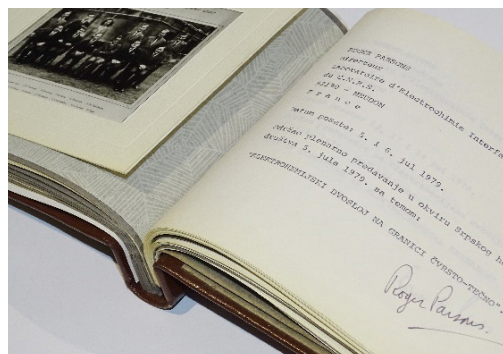 ROGER PARSONS
Laboratoire d'Electrochimie Interfa
du C.N.R.S.
MEUDON
F r a n c e
Datum posete: 5. i 6. jul 1979.
Održao plenarno predavanje u okviru Srpskog he
društva 5. jula 1979. sa temom:
"ELEKTROHEMIJSKI DVOSLOJ NA GRANICI ČVRSTO-TEČNO".
Roger Parsons.